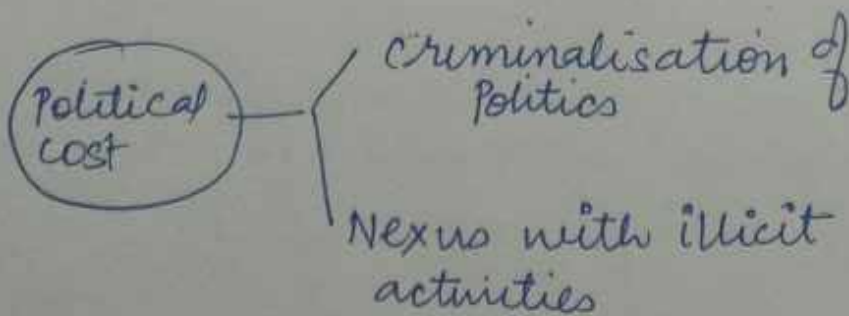 Political
cost
Criminalisation of
Politics
Nexus with illicit
activities